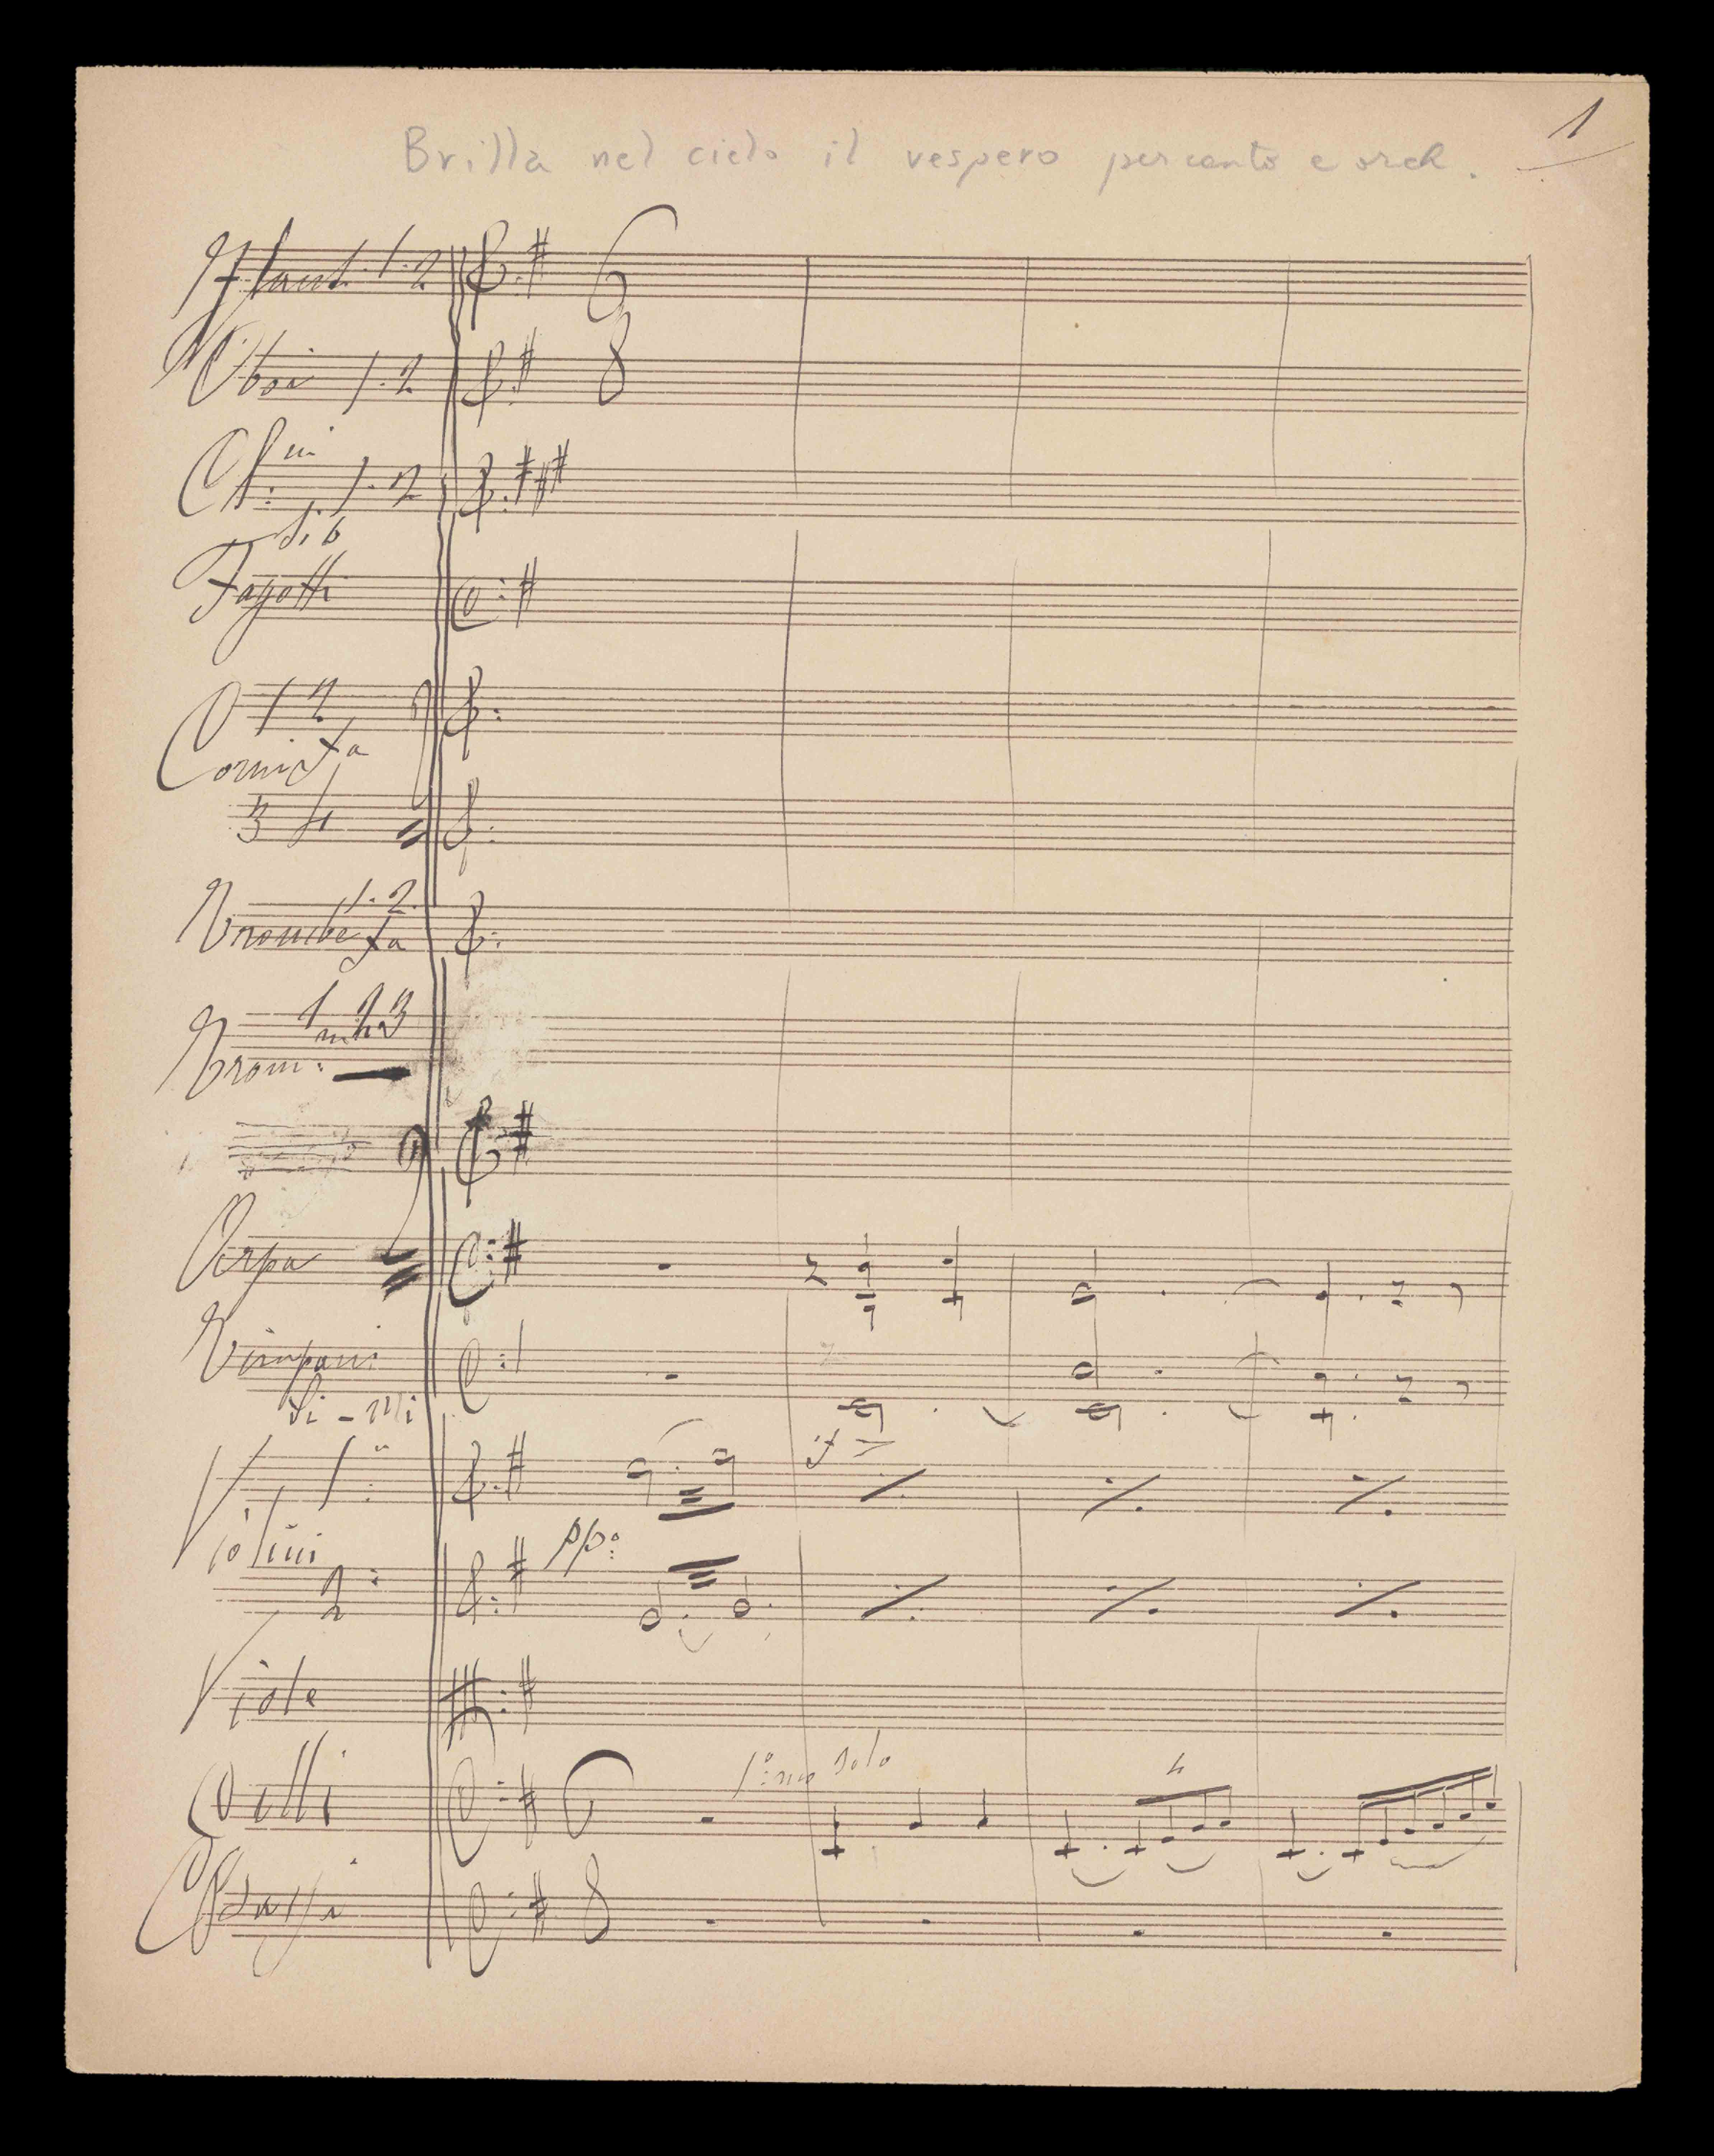 1
Brilla nel cielo il vespero per canto e orch.
Flauti 1. 2
6
Oboi 1. 2
8
Cl.ni 1. 2
Si b
Fagotti
1 2
Corni Fa
3 4
1. 2.
Trombe Fa
1 2 3
Trom:
Arpa
Timpani
Si - Mi
1°
sf >
Violini
pp:
2°
Viole
1:mo Solo
4
Celli
6
C Bassi
8